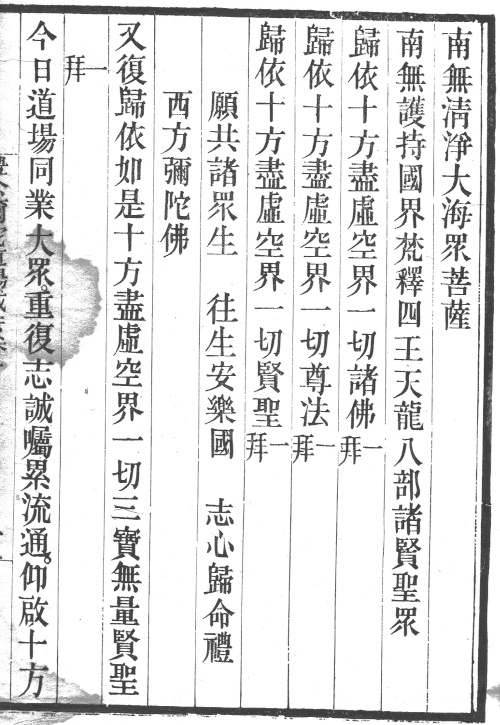 南無淸淨大海眾菩薩
南無護持國界梵釋四王天龍八部諸賢聖眾
歸依十方盡虛空界一切諸佛一拜
歸依十方盡虛空界一切尊法一拜
歸依十方盡虛空界一切賢聖一拜
願共諸眾生 往生安樂國 志心歸命禮
西方彌陀佛
又復歸依如是十方盡虛空界一切三寶無量賢聖
一拜
今日道場同業大眾。重復志誠囑累流通。仰啟十方